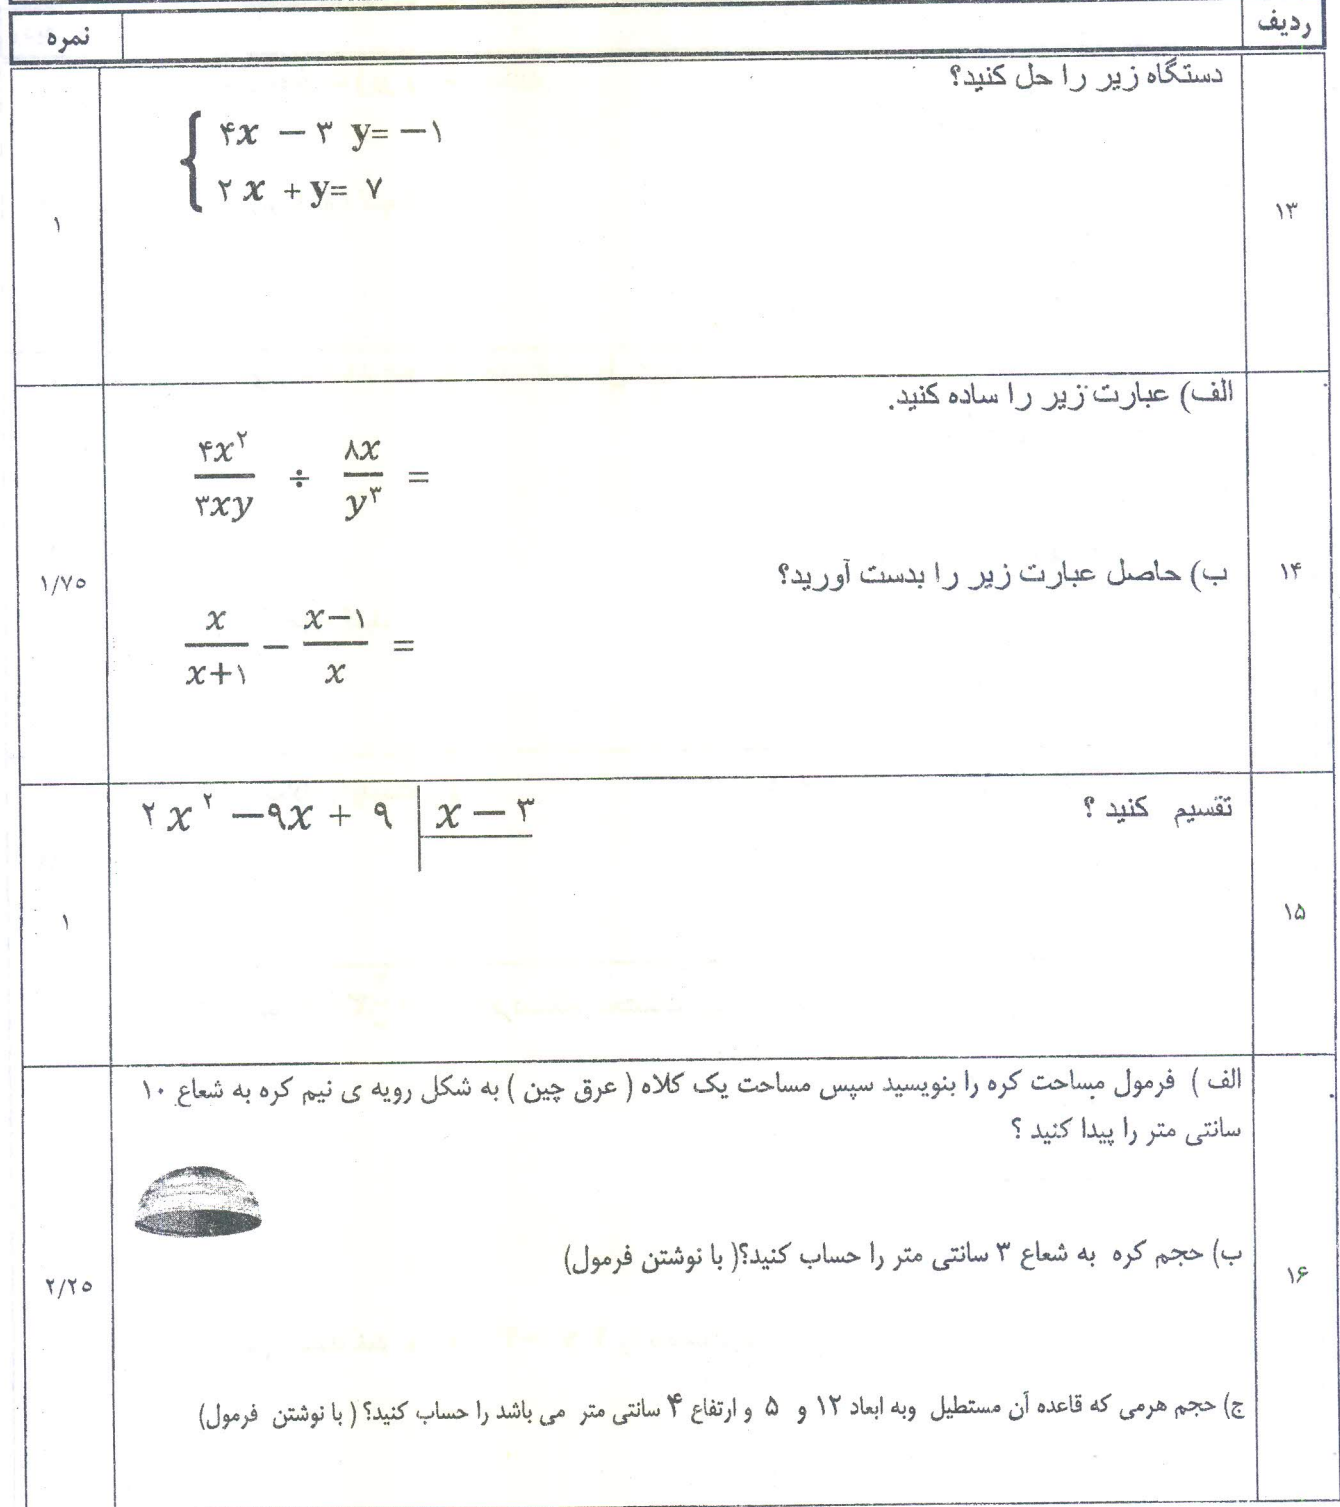 ردیف نمره
دستگاه زیر را حل کنید؟
۴x − ۳ y= −۱
۲ x + y= ۷
۱۳
۱
الف) عبارت زیر را ساده کنید.
۴x^۲ / ۳xy ÷ ۸x / y^۳ =
ب) حاصل عبارت زیر را بدست آورید؟
۱۴
۱/۷۵
x / x+۱ − x−۱ / x =
تقسیم کنید ؟
۲x^۲ −۹x + ۹ | x − ۳
۱۵
۱
الف ) فرمول مساحت کره را بنویسید سپس مساحت یک کلاه ( عرق چین ) به شکل رویه ی نیم کره به شعاع ۱۰
سانتی متر را پیدا کنید ؟
ب) حجم کره به شعاع ۳ سانتی متر را حساب کنید؟( با نوشتن فرمول)
۱۶
۲/۲۵
ج) حجم هرمی که قاعده آن مستطیل وبه ابعاد ۱۲ و ۵ و ارتفاع ۴ سانتی متر می باشد را حساب کنید؟ ( با نوشتن فرمول)